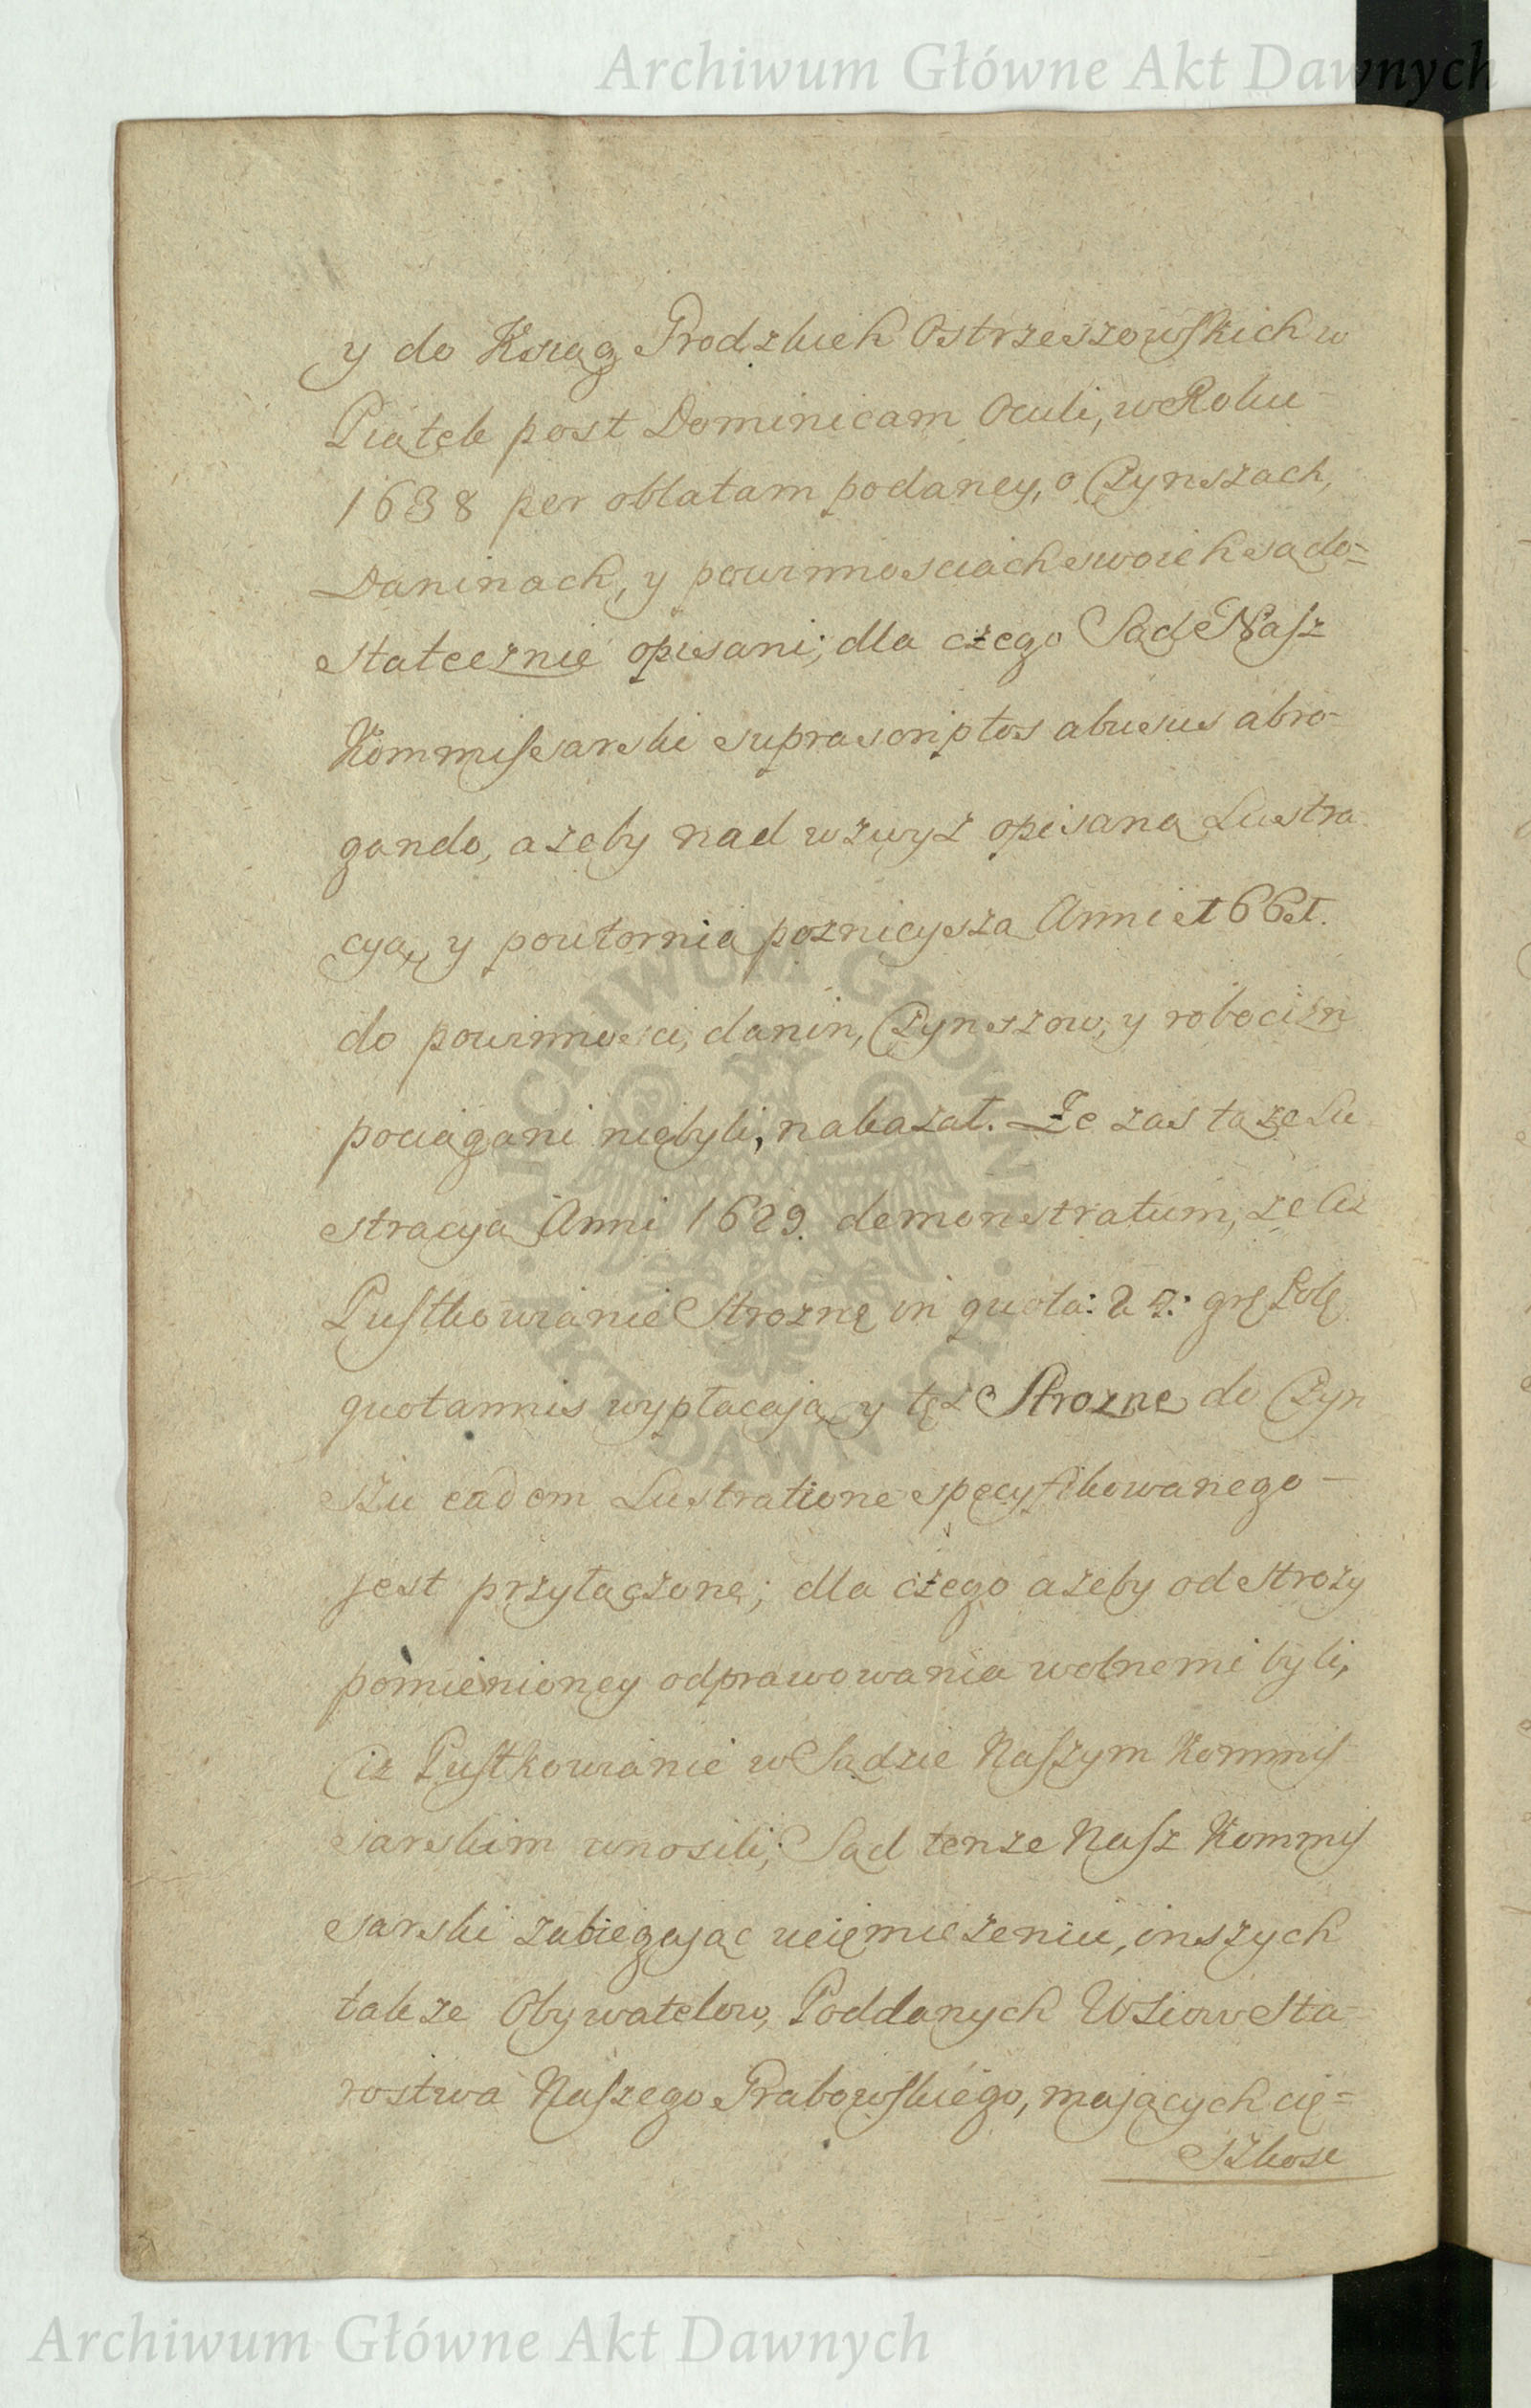 Archiwum Główne Akt Dawnych
y do Xsiąg Grodzkich Ostrzeszowskich w
Piątek post Dominicam Oculi, w Roku
1638 per oblatam podaney, o Czynszach,
Daninach, y powinnosciach swoich są do=
statecznie opisani; dla czego Sąd Nasz
Kommissarski suprascriptos abusus abro=
gando, azeby nad wzwyż opisaną Lustra
cyą, y powtornią poznieyszą Anni 1661.
do powinnosci, danin, Czynszow, y robocizn
pociągani niebyli, nakazał. Ze zas tąże Lu
stracyą Anni 1629. demonstratum, że Ciż
Pustkowianie Strozne in quota: 27: grz Polę
quotannis wypłacaią y też Strozne do Czyn
szu eadem Lustratione specyfikowanego -
jest przyłączone; dla czego azeby od Strozy
pomienioney odprawowania wolnemi byli,
Ciż Pustkowianie w Sądzie Naszym Kommis
sarskim wnosili; Sąd tenze Nasz Kommis
sarski zabiegaiąc uciemiężeniu, inszych
takze Obywatelow, Poddanych Wsiow Sta=
rostwa Naszego Grabowskiego, maiących cię=
szkose
ARCHIWUM GŁÓWNE AKT DAWNYCH
Archiwum Główne Akt Dawnych